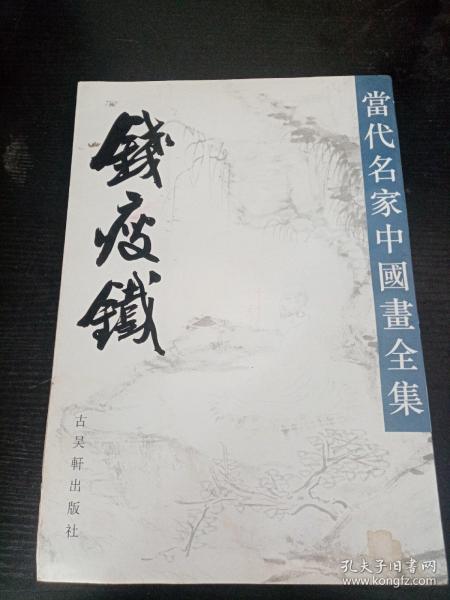 當代名家中國畫全集
錢瘦鐵
古吴軒出版社
孔夫子旧书网
www.kongfz.com